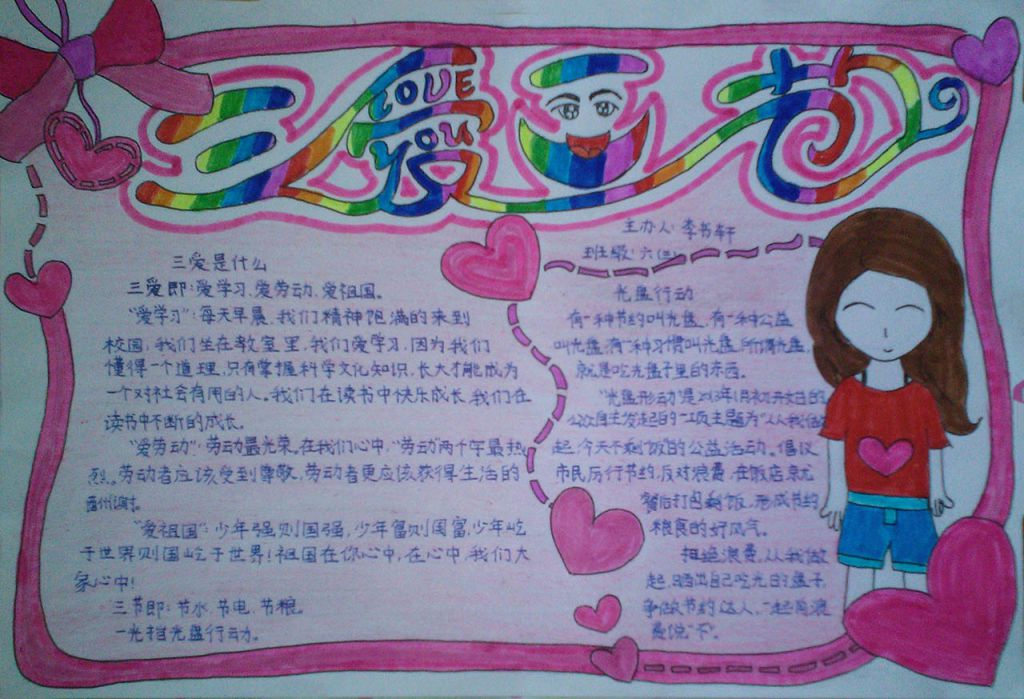 三爱三节
LOVE
YOU
三爱是什么
三爱即:爱学习、爱劳动、爱祖国。
"爱学习":每天早晨,我们精神饱满的来到
校园,我们坐在教室里,我们爱学习,因为我们
懂得一个道理,只有掌握科学文化知识,长大才能成为
一个对社会有用的人。我们在读书中快乐成长,我们在
读书中不断的成长。
"爱劳动":劳动最光荣,在我们心中,"劳动"两个字最热
烈。劳动者应该受到尊敬,劳动者更应该获得生活的
"爱祖国":少年强则国强,少年富则国富,少年屹
于世界则国屹于世界!祖国在你心中,在心中,我们大
家心中!
三节即:节水、节电、节粮。
主办人:李书轩
班级:六(三)
光盘行动
有一种节约叫光盘,有一种公益
叫光盘,有一种习惯叫光盘,所谓光盘,
就是吃光盘子里的东西。
"光盘形动"是2013年1月初开始的
公众自主发起的一项主题为"从我做
起,今天不剩饭"的公益活动。倡议
市民厉行节约,反对浪费,在饭店就
餐后打包剩饭,形成节约
粮食的好风气。
拒绝浪费,从我做
起,晒出自己吃光的盘子,
争做节约达人,一起向浪
费说"不"。